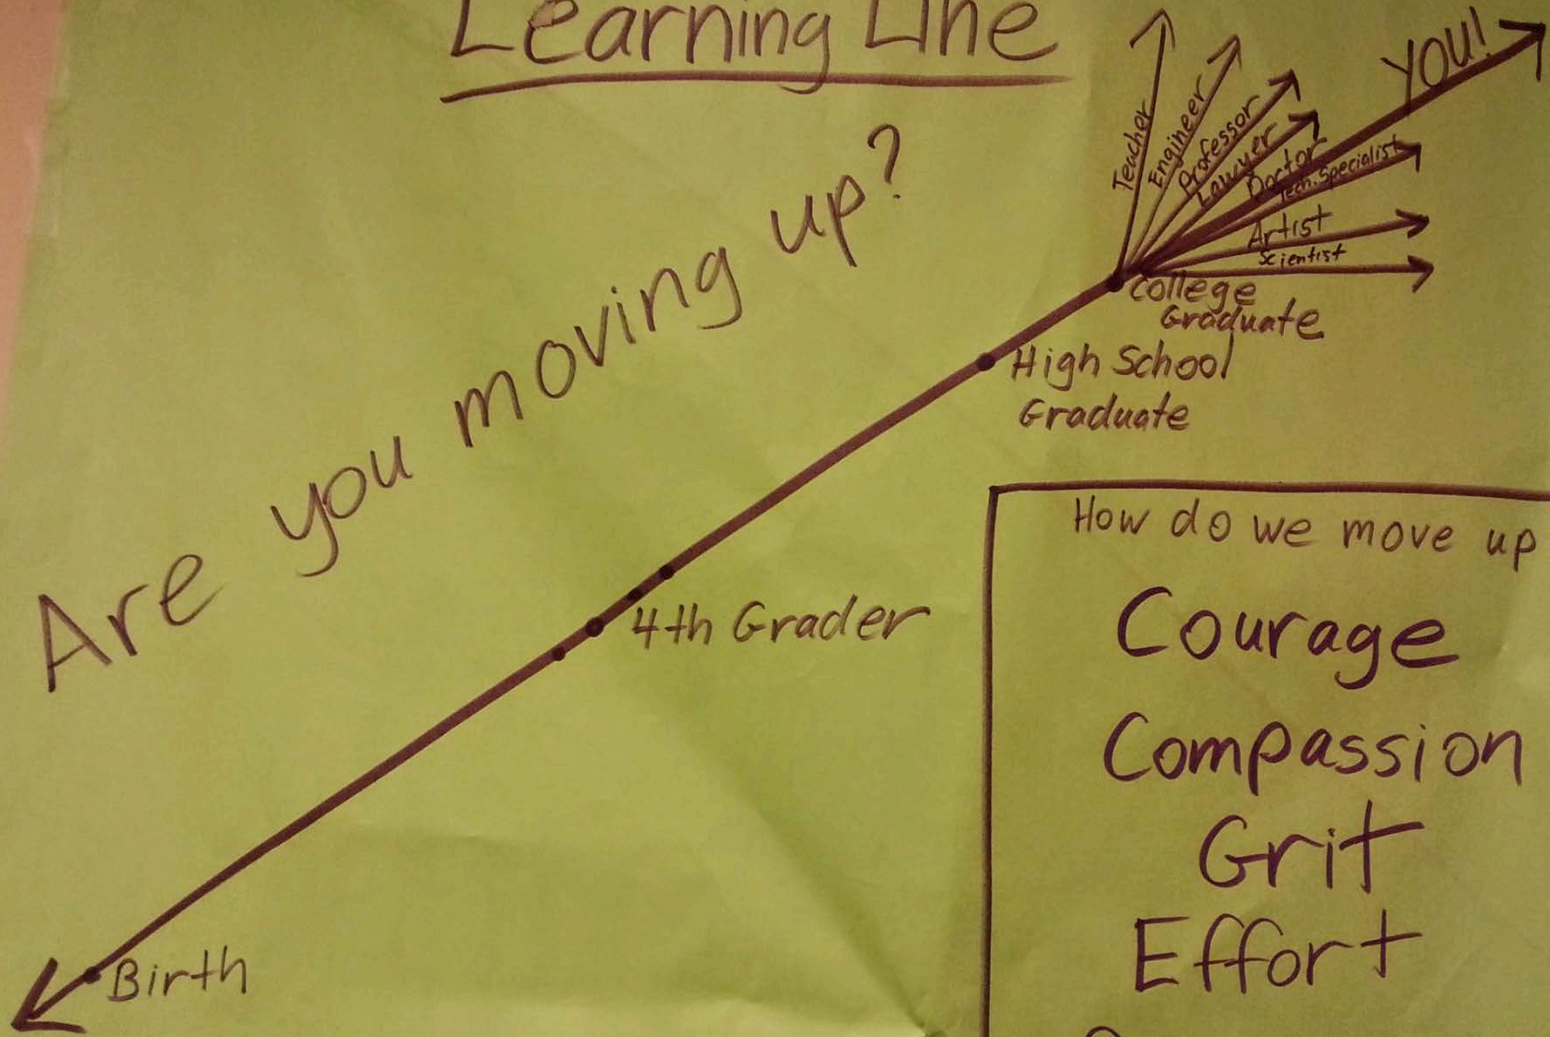 Learning Line
Are you moving up?
Teacher
Engineer
Professor
Lawyer
Doctor
YOU!
Tech. Specialist
Artist
Scientist
College
Graduate
High School
Graduate
4th Grader
Birth
How do we move up
Courage
Compassion
Grit
Effort